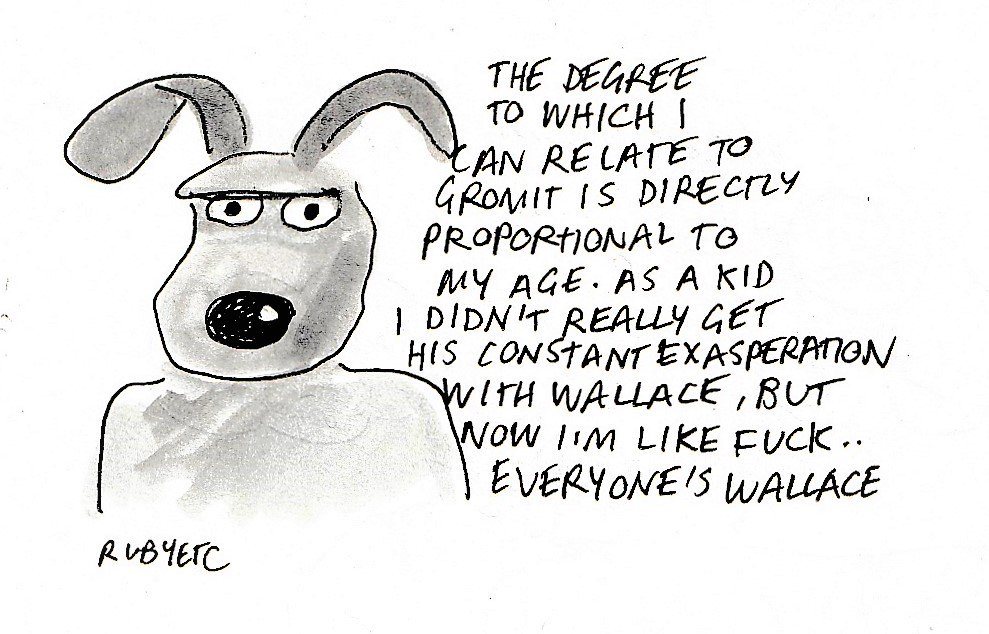 THE DEGREE
TO WHICH I
CAN RELATE TO
GROMIT IS DIRECTLY
PROPORTIONAL TO
MY AGE. AS A KID
I DIDN'T REALLY GET
HIS CONSTANT EXASPERATION
WITH WALLACE, BUT
NOW I'M LIKE FUCK..
EVERYONE'S WALLACE
RUBYETC